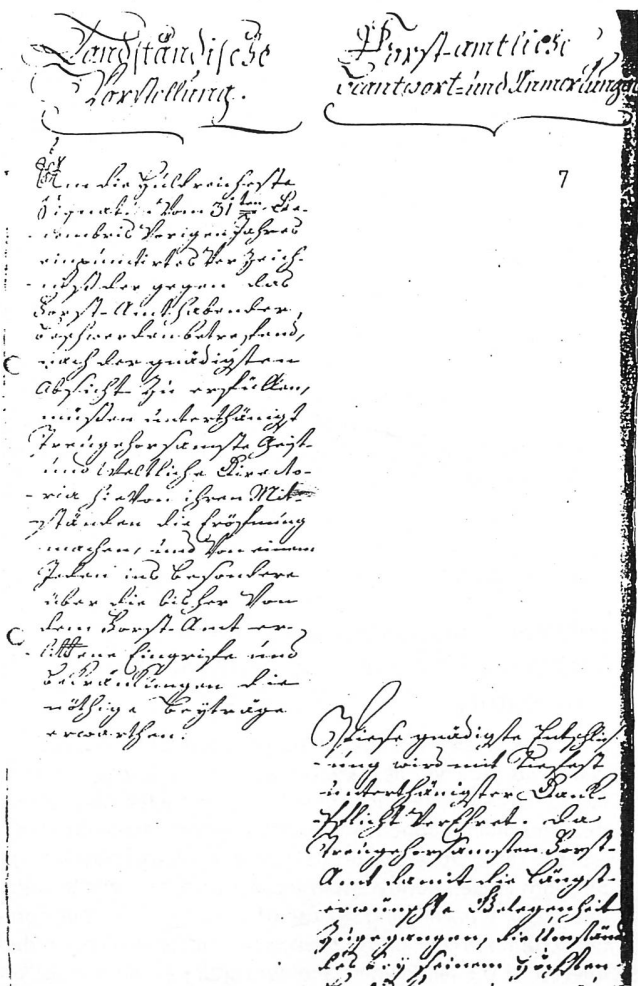 Landständische
Vorstellung.
Um die Huldreicheste
Signatur vom 31ten De-
cembris vorigen Jahres
ein Verzeich-
nuß der gegen das
Forst-Amt habender
Beschwerden betreffend,
nach der gnädigsten
Absicht zu erfüllen,
müßen unterthänigst
treugehorsamste Geist-
und Weltliche Directo-
ria hievon ihren Mit-
ständen die Eröfnung
machen, und von einem
Jeden ins besondere
über die bisher von
dem Forst-Amt er-
littene Eingriffe und
Bekränkungen die
nöthige Beyträge
erwarthen.
Forst-amtliche
Beantwort- und Anmerkungen
7
Diese gnädigste Entschlies-
sung wird mit tiefest
unterthänigster Dank-
pflicht verEhret. Da
treugehorsamsten Forst-
Amt damit die längst-
erwünschte Gelegenheit
zugegangen, die Umstände
des bey seinem Höchsten